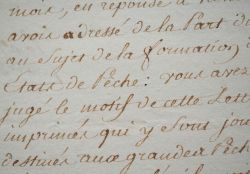 mois, en reponse a
avois adressé de la Part de
au Sujet de la formation
Etats de Pêche: vous avez
jugé le motif de cette
imprimés qui y Sont
destinés aux grandes Pêch